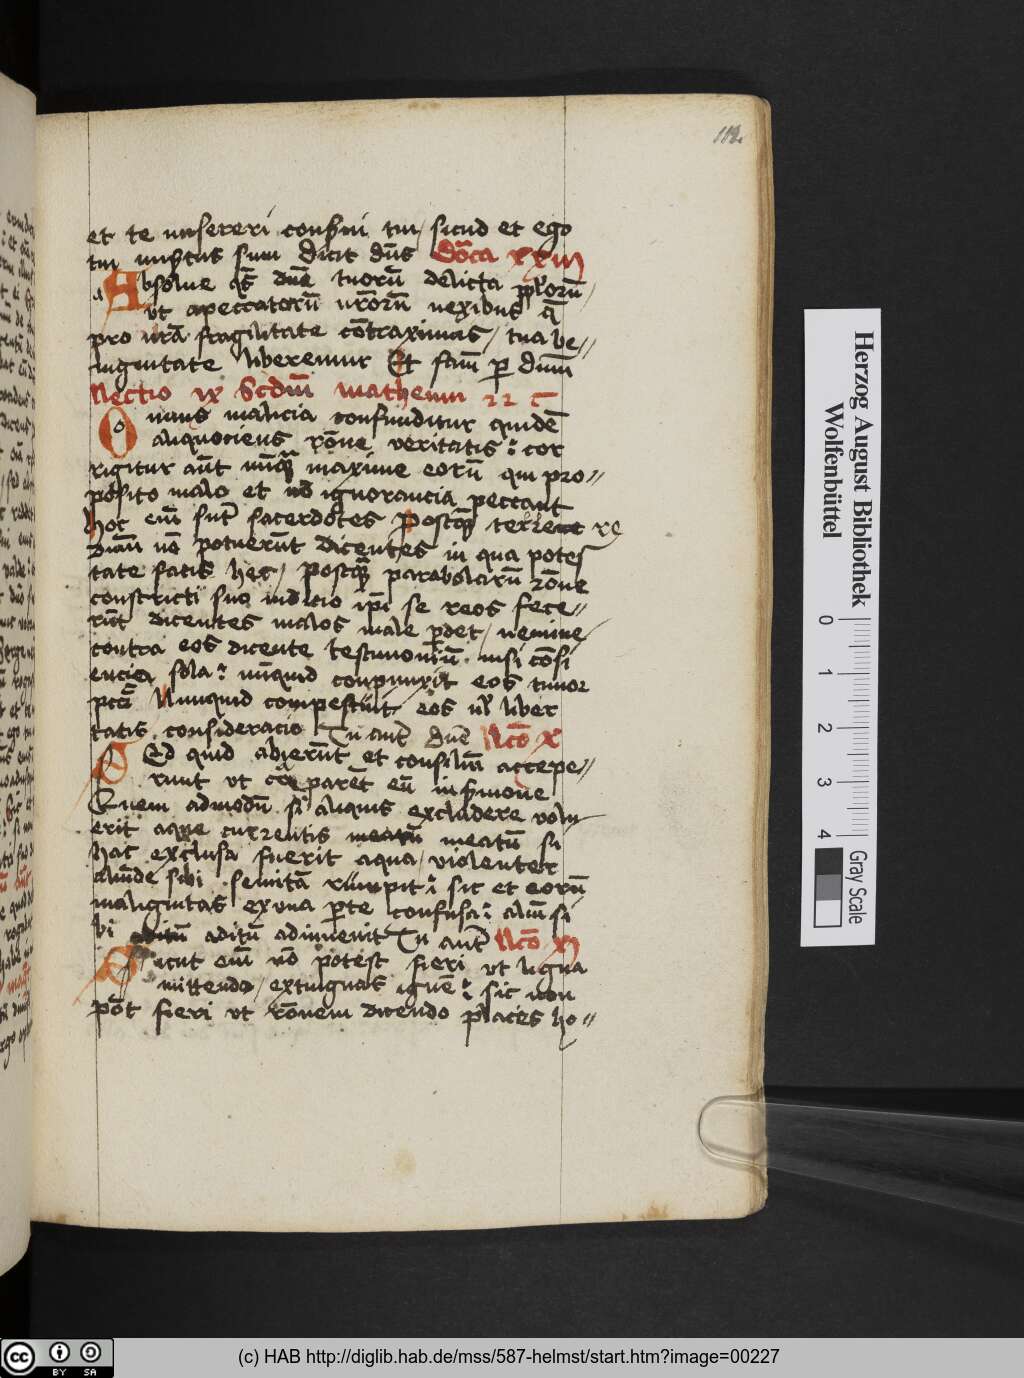 112
et te misereri conservi tui / sicud et ego
tui misertus sum dicit dn̄s Do͞ica xxiii
Absolue qs̄ dn̄e tuorū delicta pplorū /
ut a peccatorū nr̄orū nexibus q̄
pro nr̄a fragilitate cōtraximus / tua be//
nignitate liberemur Et fam̄ p dnm̄
Lectio ix Scdm̄ matheum 22 c
Omnis malicia confunditur quidē
aliquociens rōne veritatis : cor
rigitur aūt nūq̄ maxime eorū qui pro//
posito malo et nō ignorancia peccant
Hoc em̄ sūt sacerdotes Postq̄ terrere xp̄
dūm nō potuerūt dicentes in qua potes
tate facis hec / Postq̄ parabolarū rōne
constricti suo iudicio ip̄i se reos fece//
rūt dicentes malos male p̄det / nemine
contra eos dicente testimoniū . nisi cōsi
encia sola : nūquid conpunxit eos timor
pctī Nunquid compescuit eos ul̄ liber
tatis consideracio Tu autē dn̄e Lc̄o x
Sed quid abierūt et consiliū accepe//
runt ut cā parēt eū in s̄mone
Quem admodū si aliquis excludere volu
erit aque currentis meatū meatū si
hac exclusa fuerit aqua / violenter
aliūde sibi semitā rumpit : sic et eorū
malignitas ex una p̄te confusa : aliū si
bi aditū aditū adinuenit Tu autē Lc̄o xi
Sicut em̄ nō potest fieri ut ligna
mittendo / extinguas ignē : sic non
pōt fieri ut rōnem dicendo places ho//
Herzog August Bibliothek
Wolfenbüttel
0 1 2 3 4
Gray Scale
cc BY SA
(c) HAB http://diglib.hab.de/mss/587-helmst/start.htm?image=00227